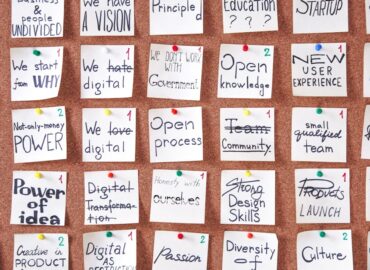 &
people
UNDIVIDED
We have
A VISION
Education
? ? ?
STARTUP
1
We start
from WHY
1
We hate
digital
1
WE DON'T
WORK
WITH
Government!
2
Open
knowledge
1
NEW
USER
EXPERIENCE
2
Not-only-money
POWER
1
We love
digital
1
Open
process
1
Team
Community
2
small
qualified
team
1
Power of
idea
1
Digital
Transforma-
tion
2
Honesty with
ourselves
1
Strong
Design
Skills
1
Products
LAUNCH
2
Creative in
PRODUCT
2
Digital
AS
2
Passion
1
Diversity
of
2
Culture